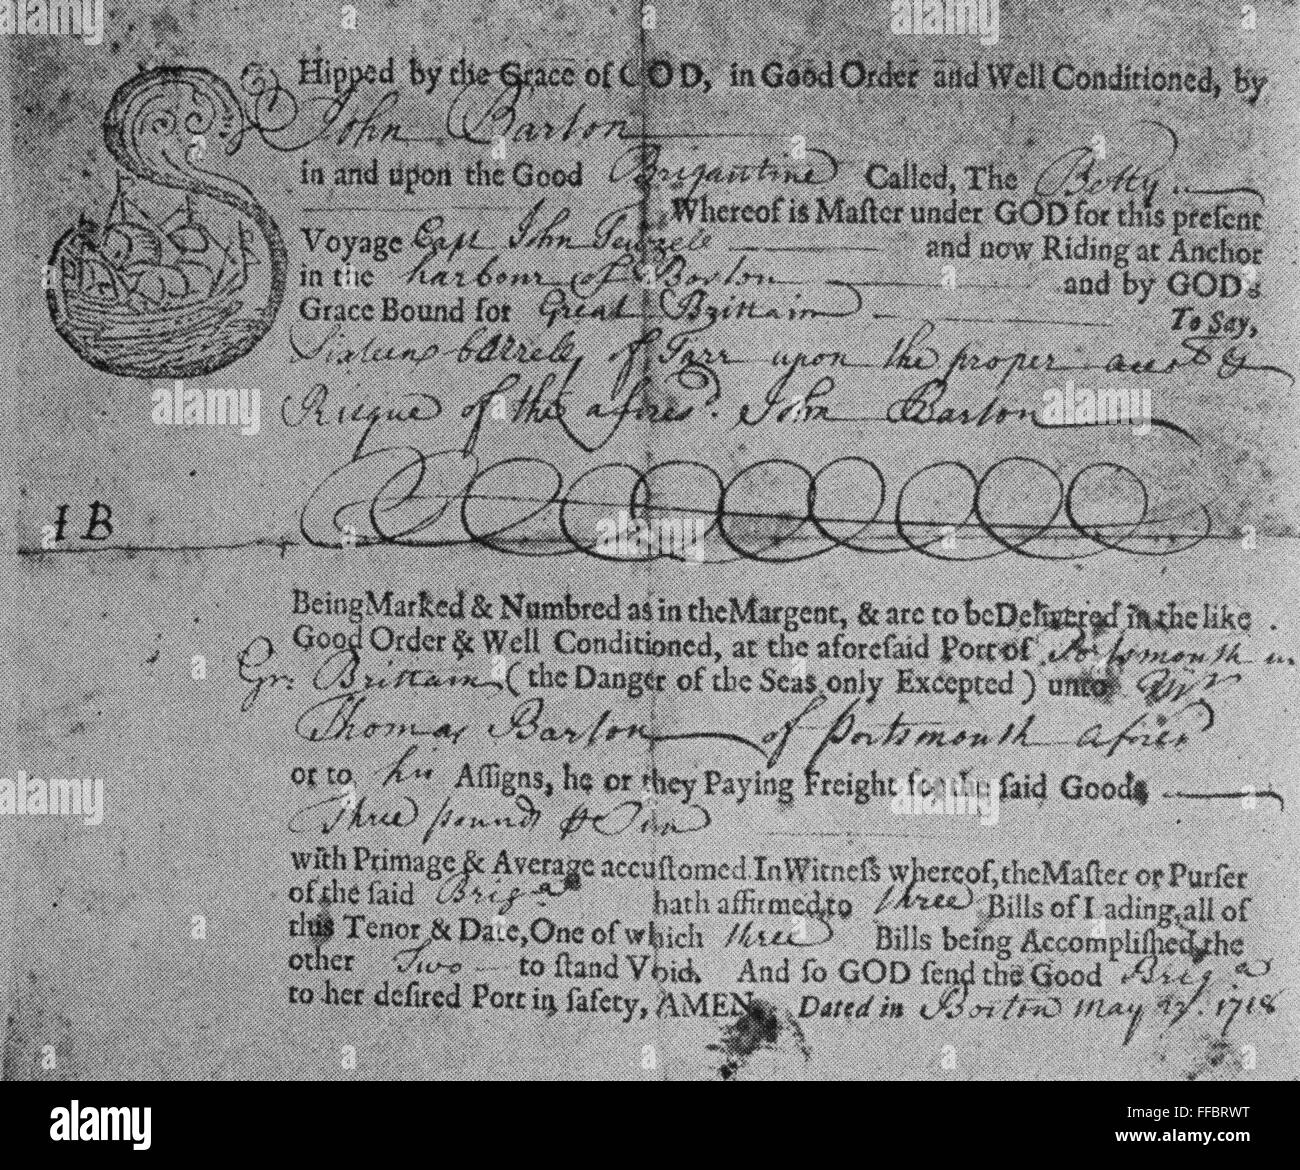 SHipped by the Grace of GOD, in Good Order and Well Conditioned, by
John Barton
in and upon the Good Brigantine Called, The Betty
Whereof is Maſter under GOD for this preſent
Voyage Capt John and now Riding at Anchor
in the harbour of Boston and by GODs
Grace Bound for Great Brittain To Say,
barrels of Tarr upon the proper
Risque of the afores.d John Barton
IB
Being Marked & Numbred as in the Margent, & are to be Delivered in the like
Good Order & Well Conditioned, at the aforeſaid Port of Portsmouth in
Gr. Brittain (the Danger of the Seas only Excepted) unto Mr
Thomas Barton of Portsmouth afores
or to his Aſſigns, he or they Paying Freight for the ſaid Goods
Three pounds
with Primage & Average accuſtomed. In Witneſs whereof, the Maſter or Purſer
of the ſaid Brig.a hath affirmed to three Bills of Lading, all of
this Tenor & Date, One of which three Bills being Accompliſhed, the
other Two to ſtand Void. And ſo GOD ſend the Good Brig.a
to her deſired Port in ſafety, AMEN. Dated in Boston May 1718
alamy
a
Image ID: FFBRWT
www.alamy.com